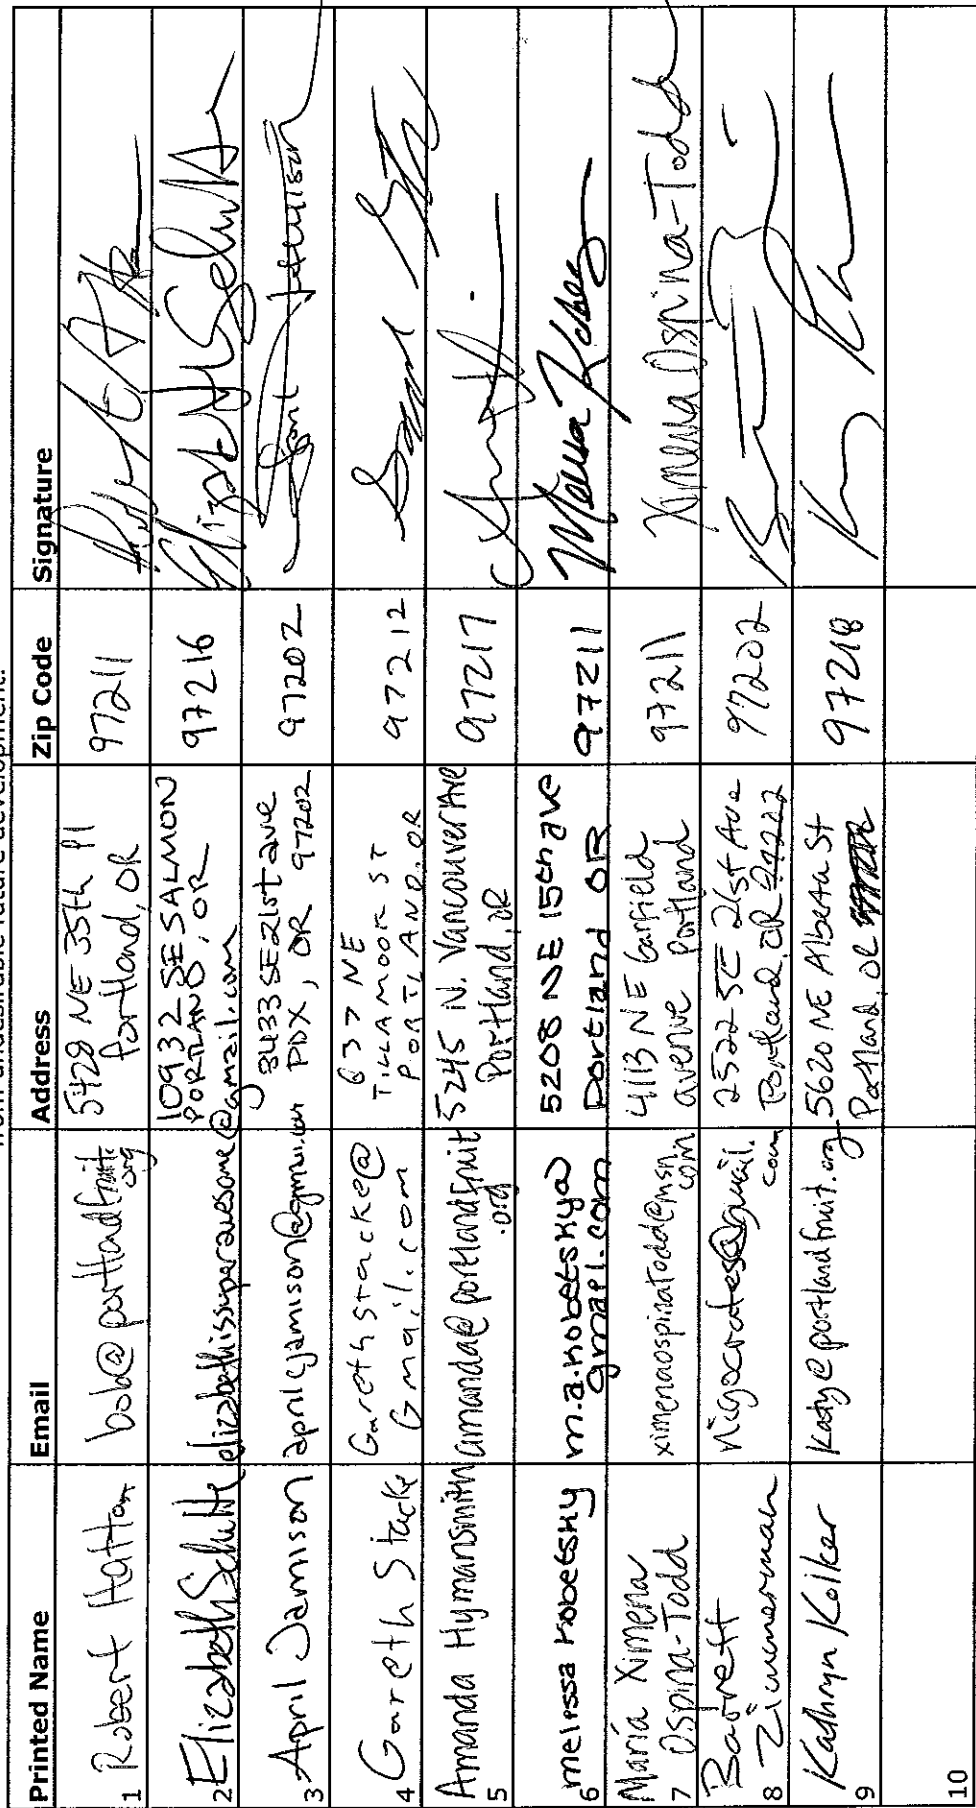 from undesirable future development.
Printed Name Email Address Zip Code Signature
1 Robert Hatton bob@portlandfruit.org 5428 NE 35th Pl Portland, OR 97211
2 Elizabeth Schulte elizabethissuperawesome@gmail.com 10932 SE SALMON PORTLAND, OR 97216
3 April Jamison aprilcjamison@gmail.com 3433 SE 21st ave PDX, OR 97202 97202
4 Gareth Stacke Garethstacke@Gmail.com 637 NE TILLAMOOK ST PORTLAND, OR 97212
5 Amanda Hymansmith amanda@portlandfruit.org 5245 N. Vancouver Ave Portland, OR 97217
6 melissa Kobetsky m.a.kobetsky@gmail.com 5208 NE 15th ave Portland OR 97211
7 María Ximena Ospina-Todd ximenaospinatodd@msn.com 4113 NE Garfield avenue Portland 97211 Ximena Ospina-Todd
8 Barrett Zimmerman 2522 SE 21st Ave Portland, OR 97202 97202
9 Kathryn Kolker Katy@portlandfruit.org 5620 NE Alberta St Portland, OR 97218
10